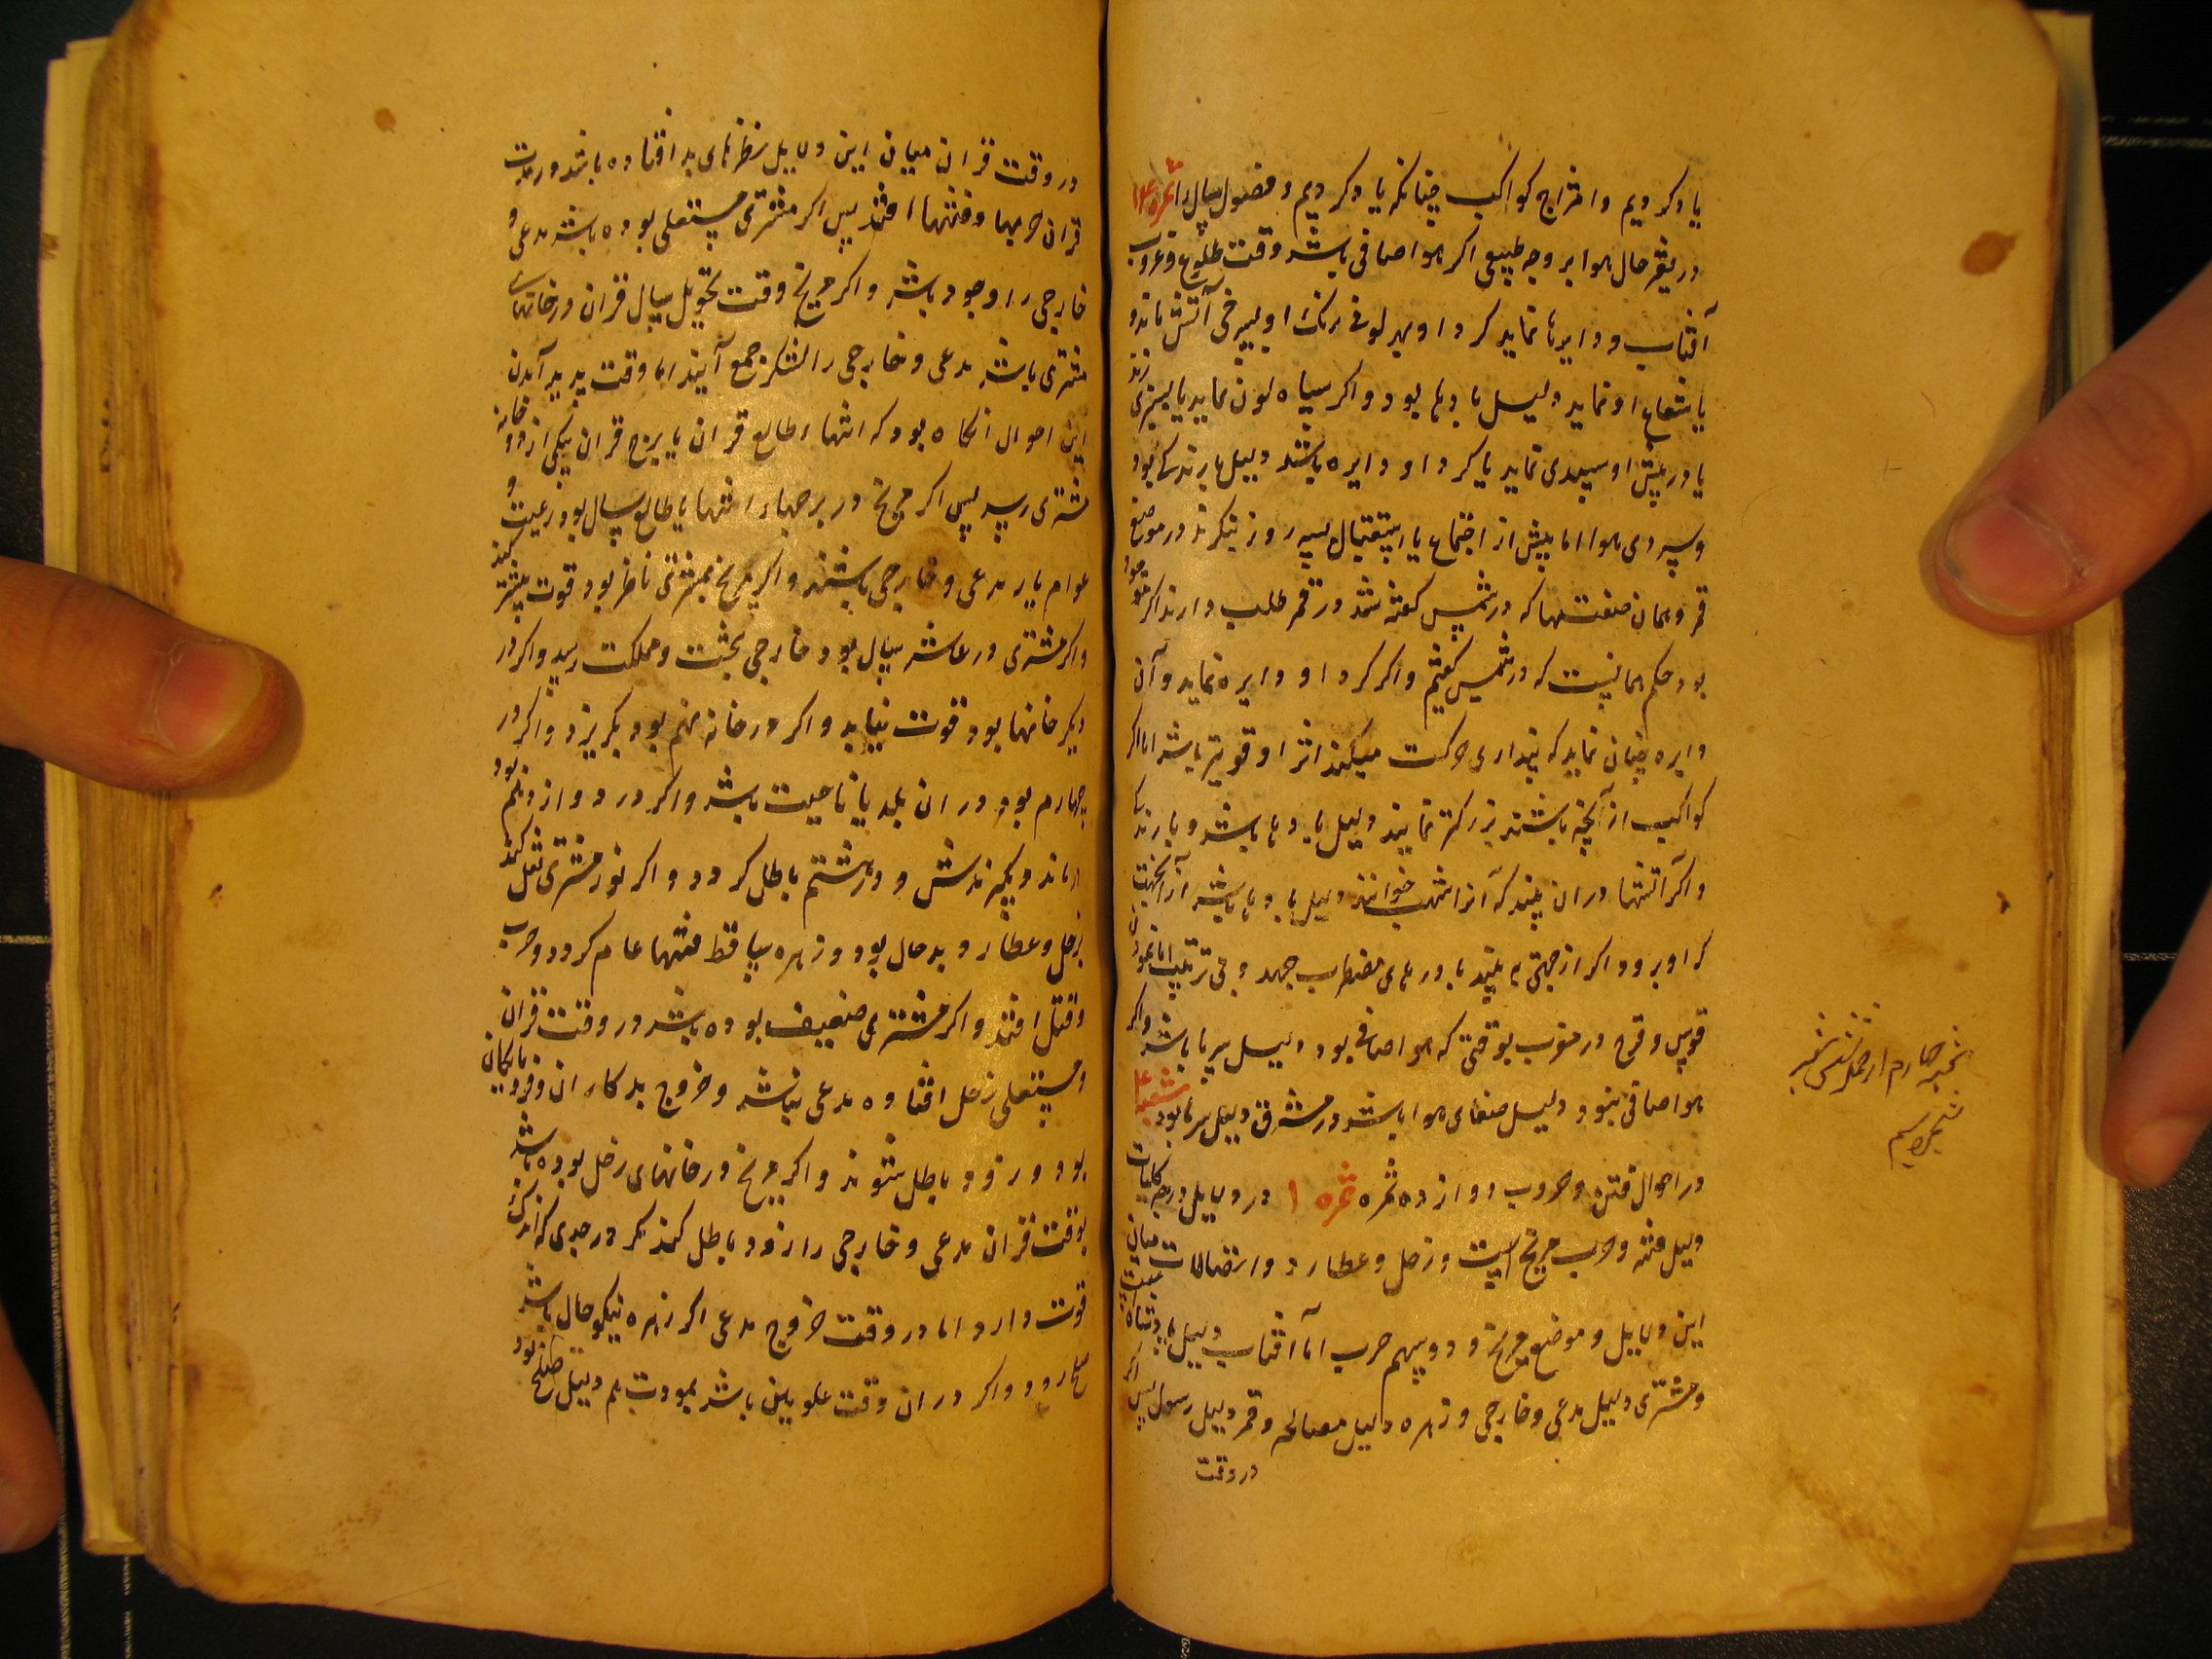 یاد کردیم و امتزاج کواکب چنانکه یاد کردیم و فصول سال را ثمره ۱۴
در تغیر حال هوا بر وجه طبیعی اگر هوا صافی باشد وقت طلوع و غروب
آفتاب و دایرها نماید کرد او بهر لونی رنک او بسرخی آتش ماند و
یا شعاع او نماید دلیل بادها بود و اکر سیاه لون نماید یا بسبزی زند
یا در پیش او سپیدی نماید یا کرد او دایره باشد دلیل بارندکی بود
و سردی هوا اما پیش از اجتماع یا استقبال سه روز بنکرند در موضع
قمر و بهمان صفتها که در شمس کفته شد در قمر طلب دارند اکر موجود
بود حکم همانست که در شمس کفتیم و اکر کرد او دایره نماید و آن
دایره چنان نماید که پنداری حرکت میکند اثر او قویتر باشد اما اکر
کواکب از آنچه باشند بزرکتر نمایند دلیل بادها باشد و بارندکی
و اکر آتشها در ان بینند که آنرا شهب خوانند دلیل بادها باشد از آنجهت
کر او برود اکر از جهتی بینند بادهای مضطرب جهد و بی ترتیب اما نمودن
قوس و قزح در مغرب بوقتی که هوا صافی بود دلیل سرما باشد و اکر
هوا صافی نبود دلیل صفای هوا باشد در مشرق دلیل سرما بود شعبه ۴
در احوال فتنه و حروب دوازده ثمره ثمره ۱ در دلایل و درجه کلیات
دلیل فتنه و حرب مریخ است و زحل و عطارد و اتصالات میان
این دلایل و موضع مریخ و دو سهم حرب اما آفتاب دلیل پادشاه است
و مشتری دلیل مدعی و خارجی و زهره دلیل مصالحه و قمر دلیل رسول پس اکر
در وقت
شعبه چهارم از جمله شش شعبه
شجره سیم
در وقت قران میان این دلایل نظرهای بد افتاده باشد در مدت
قران حربها و فتنها افتد پس اکر مشتری مستعلی بوده باشد مدعی و
خارجی را وجود باشد و اکر مریخ وقت تحویل سال قران در خانهای
مشتری باشد مدعی و خارجی را لشکر جمع آیند اما وقت پدید آمدن
این احوال انکاه بود که انتهاء طالع قران یا برج قران بیکی از دو خانه
مشتری رسد پس اکر مریخ در برجهاء انتها یا طالع سال بود رعیت و
عوام یار مدعی و خارجی باشند و اکر مریخ بمشتری ناظر بود قوت بیشتر کند
و اکر مشتری در عاشر سال بود خارجی بتخت و مملکت رسد و اکر در
دیکر خانها بود قوت نیابد و اکر در خانه نهم بود بکریزد و اکر در
چهارم بود در ان بلد یا ناحیت باشد و اکر در دوازدهم بود
درماند و بکیرندش و در هشتم باطل کردد و اکر نور مشتری نقل کند
بزحل و عطارد بدحال بود و زهره ساقط فتنها عام کردد و حرب
و قتل افتد و اکر مشتری ضعیف بوده باشد در وقت قران
و مستعلی زحل افتاده مدعی نباشد و خروج بدکاران و فرومایکان
بود و زود باطل شوند و اکر مریخ در خانهای زحل بوده باشد
بوقت قران مدعی و خارجی را زود باطل کند مکر در جدی که اندک
قوت دارد اما در وقت خروج مدعی اکر زهره نیکو حال باشد
صلح رود و اکر در ان وقت علویین باشد بمودت هم دلیل صلح بود